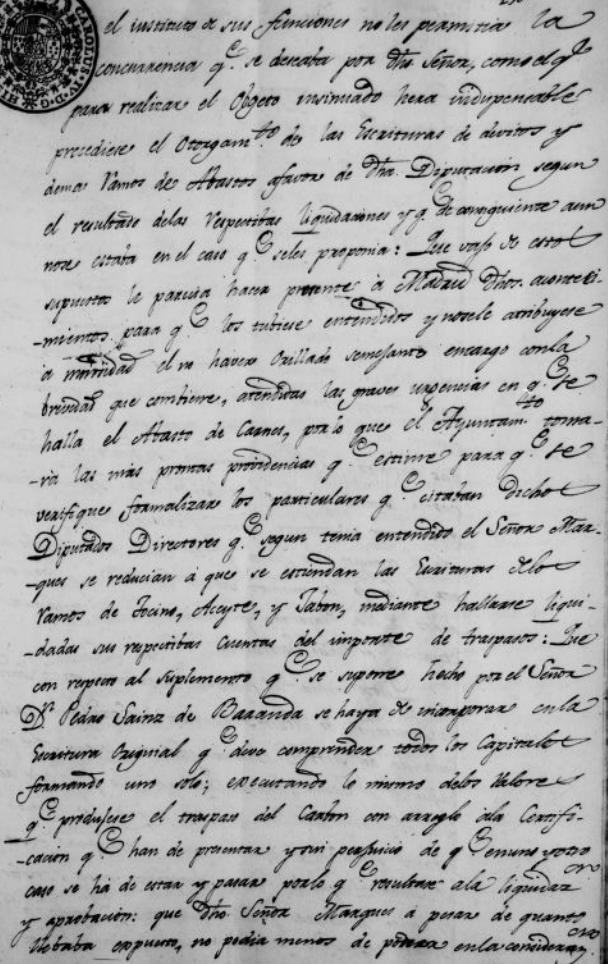 el instituto de sus funciones no les permitia la
concurrencia q.e se deseaba por dho. Señor, como el q.e
para realizar el Objeto insinuado hera indispensable
precediese el Otorgam.to de las Escrituras de devitos y
demas Ramos de Abastos afavor de dha. Diputacion segun
el resultado delas respectibas liquidaciones y q.e de consiguiente aun
nose estaba en el caso q.e seles proponia: Que vajo de esto
supuesto le parecia hacer presente à Madrid dhos. aconteci-
-mientos para q.e los tubiese entendidos y nosele atribuyese
a el no haver Orillado semejante encargo conla
brevedad que combiene, atendidas las graves urgencias en q.e se
halla el Abasto de Carnes, porlo que el Ayuntam.to toma-
-ria las mas prontas providencias q.e estime para q.e se
verifique formalizar los particulares q.e citaban dichos
Diputados Directores q.e segun tenia entendido el Señor Mar-
-ques se reducian à que se estiendan las Escrituras delos
Ramos de Tocino, Aceyte, y Jabon, mediante hallarse liqui-
-dadas sus respectibas Cuentas del importe de traspasos: Que
con respecto al suplemento q.e se supone hecho por el Señor
D.n Pedro Sainz de Baranda se haya de incorporar en la
Escritura Original q.e deve comprender todos los Capitales
formando uno solo; executando lo mismo delos Valores
q.e produjese el traspaso del Carbon con arreglo ala Certifi-
-cacion q.e han de presentar y sin perjuicio de q.e enuno y otro
caso se hà de estar y pasar porlo q.e resultare ala liquidaz.on
y aprobacion: que dho. Señor Marques à pesar de quanto
llebaba expuesto, no podia menos de poner enla consideraz.on